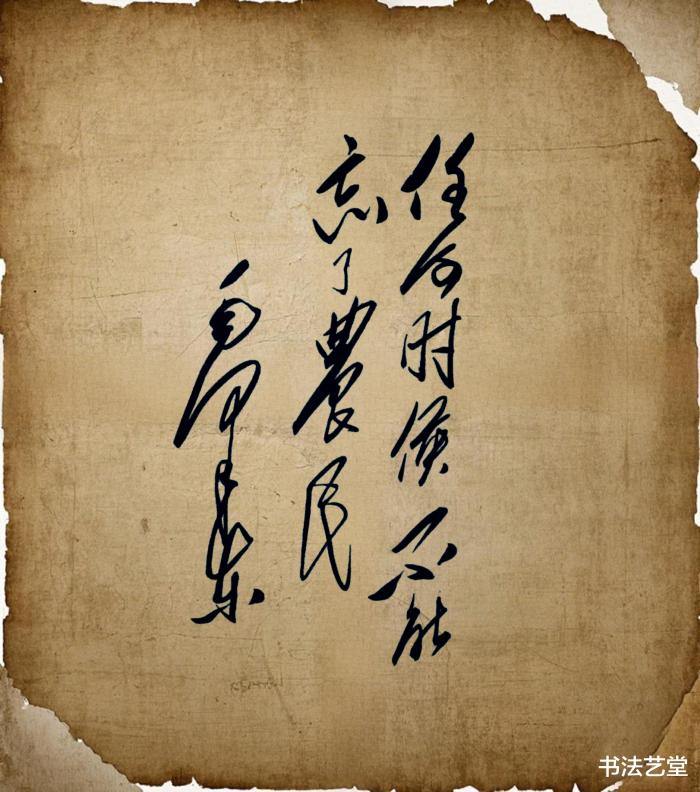 任何时候不能
忘了農民
毛泽东
书法艺堂